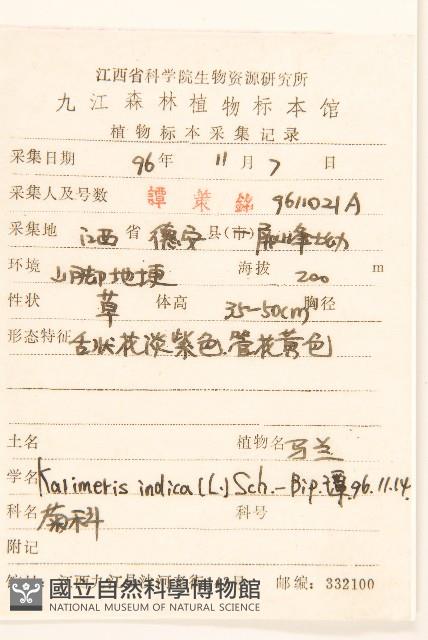 江西省科学院生物资源研究所
九江森林植物标本馆
植物标本采集记录
采集日期 96年 11月 7日
采集人及号数 譚策銘 9611021A
采集地 江西省 德安县(市)
环境 山脚地埂 海拔 200 m
性状 草 体高 35-50cm 胸径
形态特征 舌状花淡紫色.管花黄色
土名 植物名 马兰
学名 Kalimeris indica (L.) Sch.-Bip. 譚.96.11.14.
科名 菊科 科号
附记
江西九江县沙河 邮编：332100
國立自然科學博物館
NATIONAL MUSEUM OF NATURAL SCIENCE